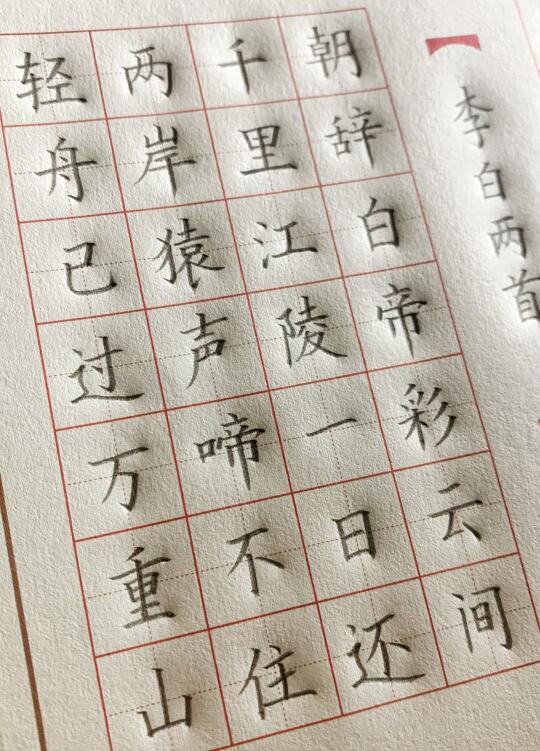 李白两首
朝辞白帝彩云间
千里江陵一日还
两岸猿声啼不住
轻舟已过万重山